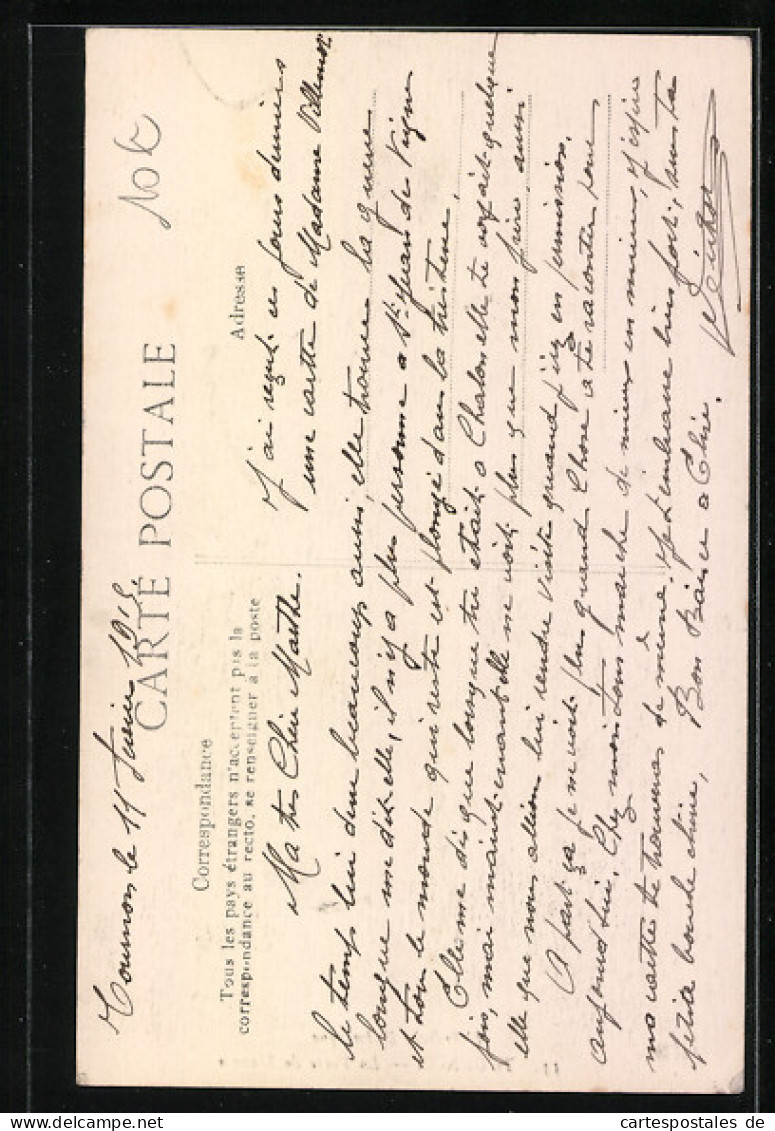 10 €
Tournon le 11 Février 1915.
CARTE POSTALE
Correspondance
Adresse
Tous les pays étrangers n'acceptent pas la
correspondance au recto, se renseigner à la poste
J'ai reçut ces jours derniers
une carte de Madame Villemot
Ma très Chère Marthe.
le temps lui dure beaucoup aussi, elle trouve la guerre
longue me dit-elle, il n'y a plus personne a St Jean des Vignes
et tous le monde qui reste est plongé dans la tristesse.
Elle me dis que lorsque tu étais a Chalon elle te voyait quelque
fois, mai maintenant elle ne voit plus que mon frère aussi
elle que nous allions lui rendre visite quand j'irez en permission.
A part ça je ne voit plus grand Chose a te raconter pour
aujourd'hui. Chez moi tous marche de mieux en mieux, j'espère
ma carte te trouveras de même. Je t'embrasse bien fort, sur ta
petite bouche chérie, Bon Baiser a Elise.
cartespostales de